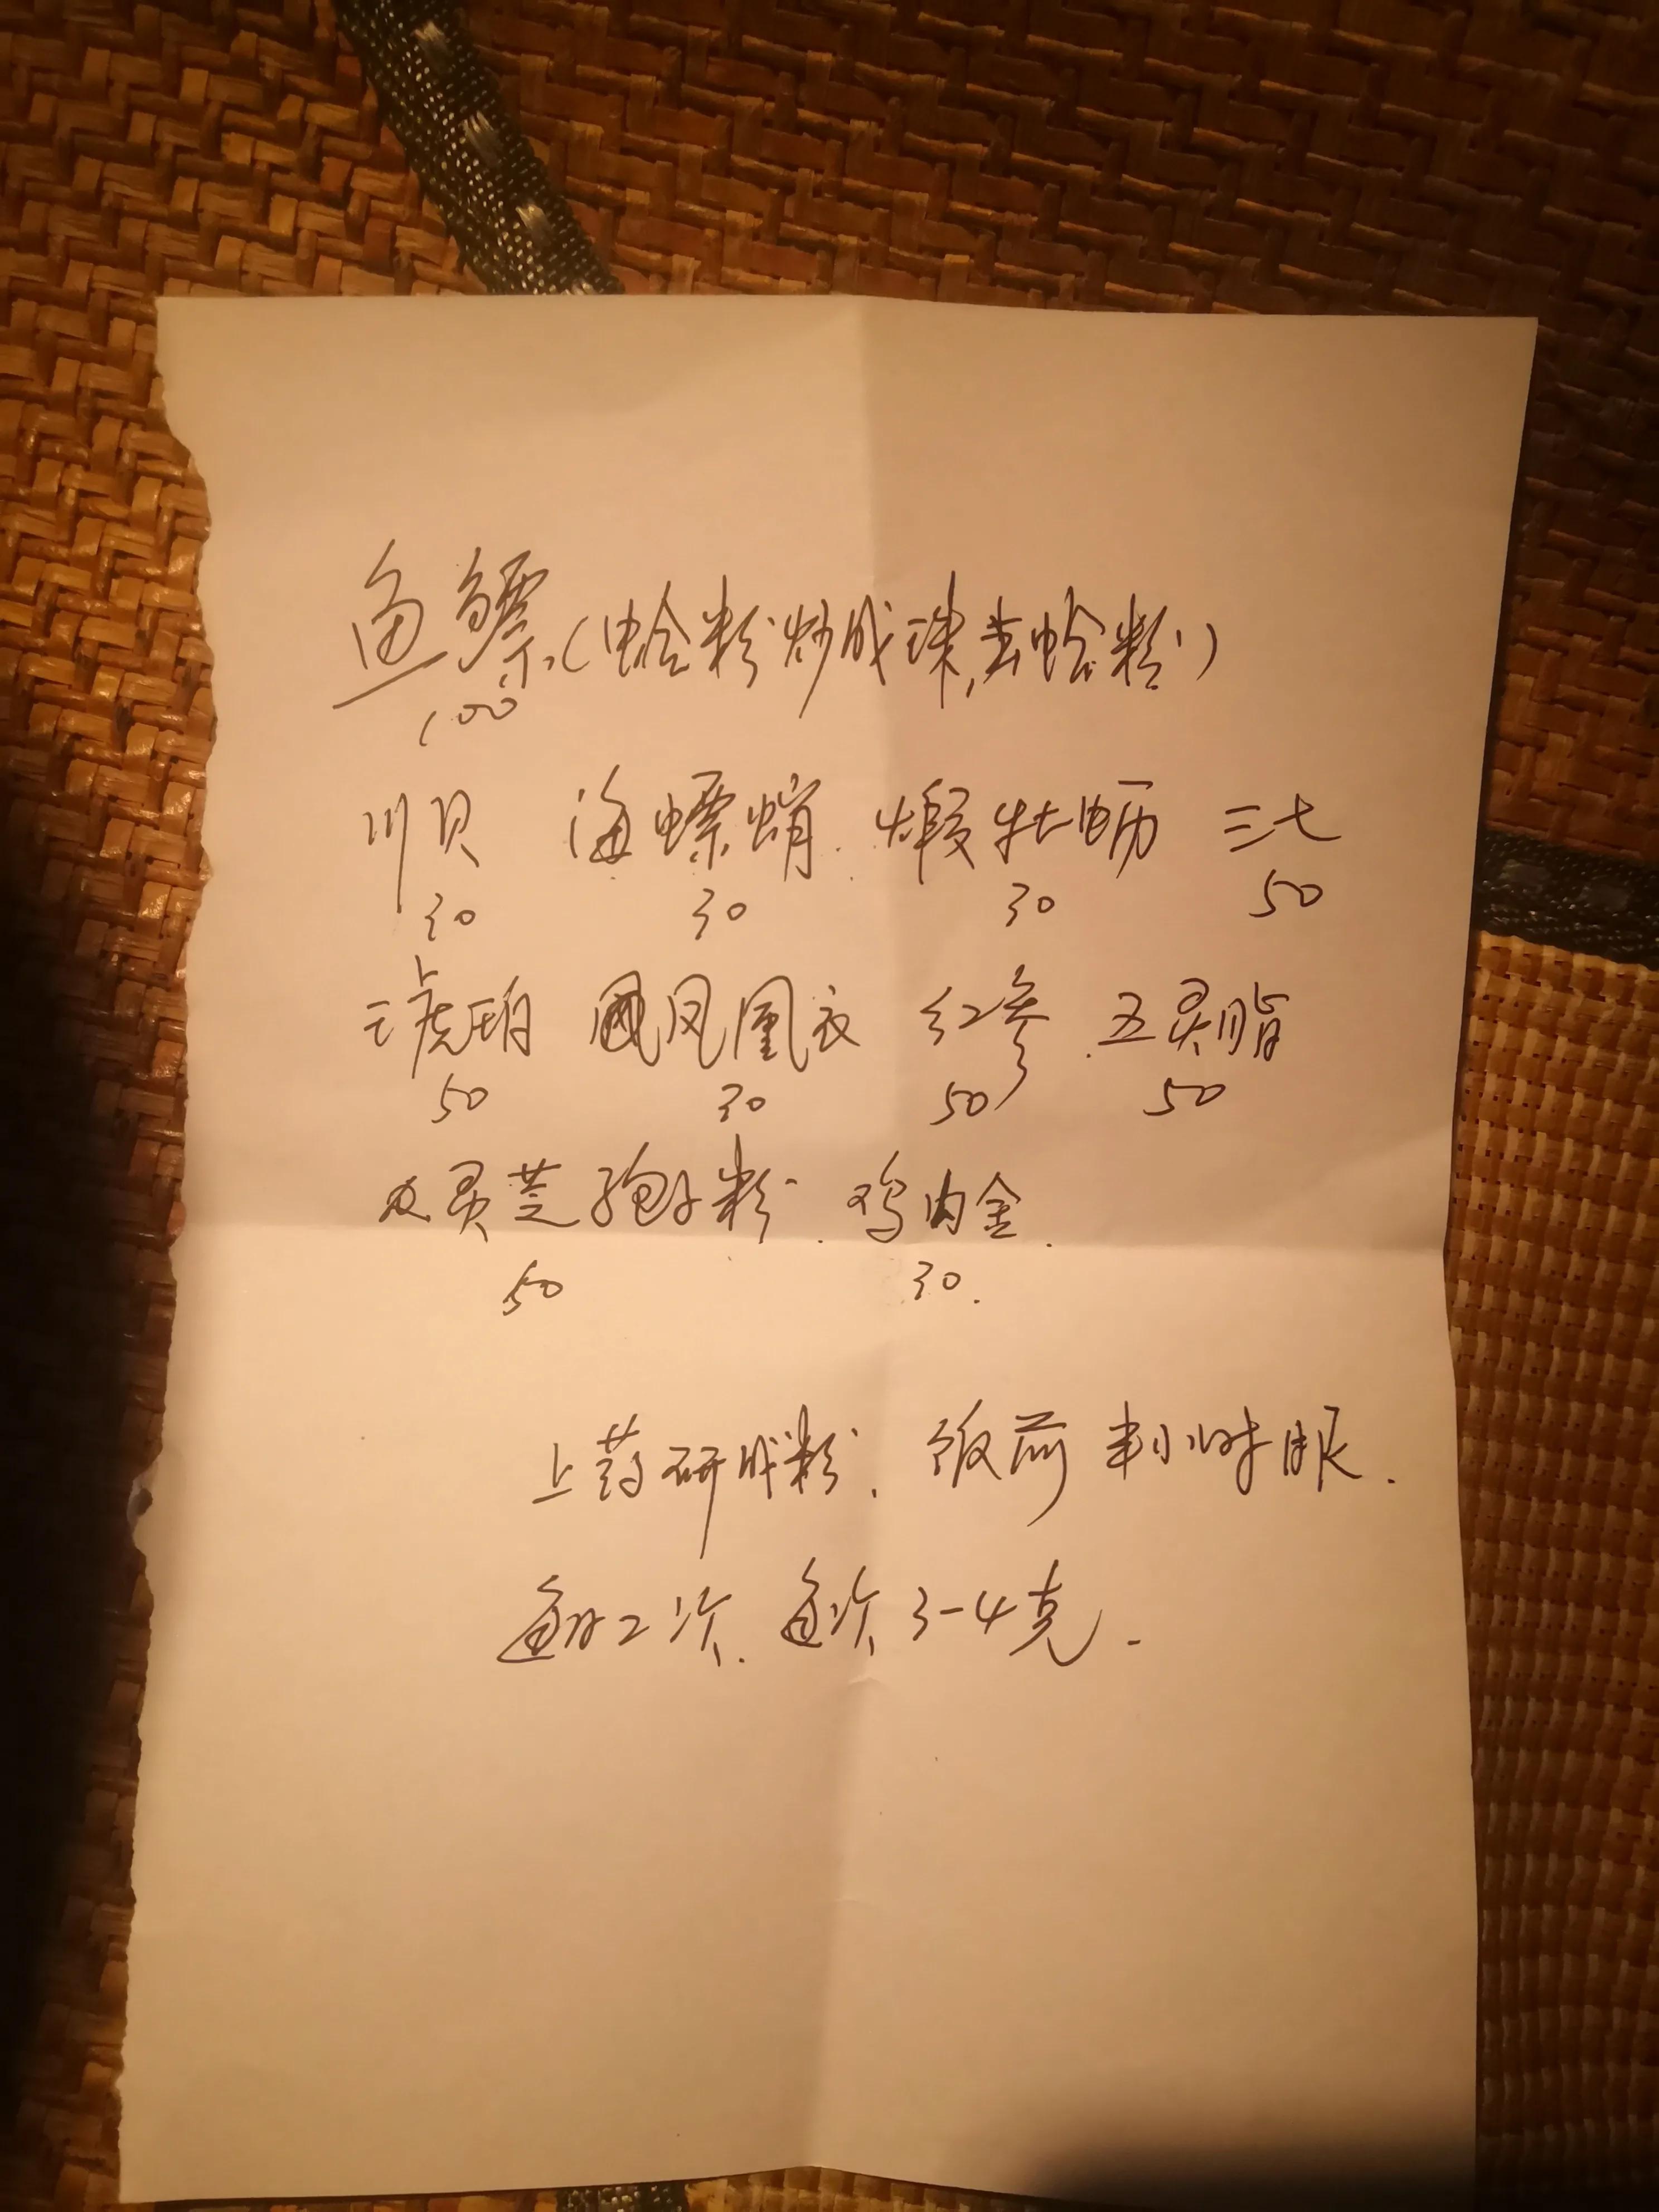 鱼鳔.(蛤粉炒成珠,去蛤粉)
100
川贝 海螵蛸. 煅牡蛎 三七
30 30 30 50
琥珀 凤凰衣 红参 五灵脂
50 30 50 50
灵芝孢子粉. 鸡内金.
50 30.
上药研成粉. 饭前半小时服.
每日2次. 每次3-4克.